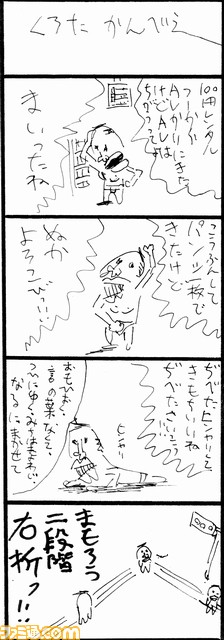 くろた かんべえ
100円レンタル
つーかか
AVかりにきた
けどAVは
ちがうって
まいったね
こうふんして
パンツ一枚で
きたけど
ぬか
よろこびっ!!
ぢべたヒンヤリと
きもちいいね
ぢべたさいこうっ
ヒンヤリ
おもひおく
言の葉なくて
つひにゆくみちはまよわじ
なるにまかせて
まもろうっ
二段階
右折っ!!
ファミ通.com